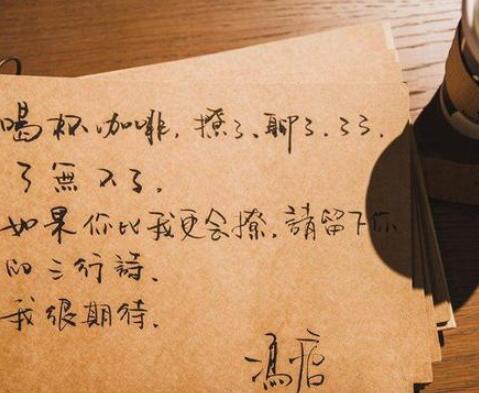 喝杯咖啡，撩了、聊了、了了，
了無
如果你比我更会撩，請留下你
的三行詩、
我很期待、
馮唐